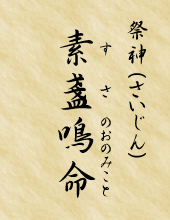 祭神(さいじん)
素盞鳴命
すさのおのみこと